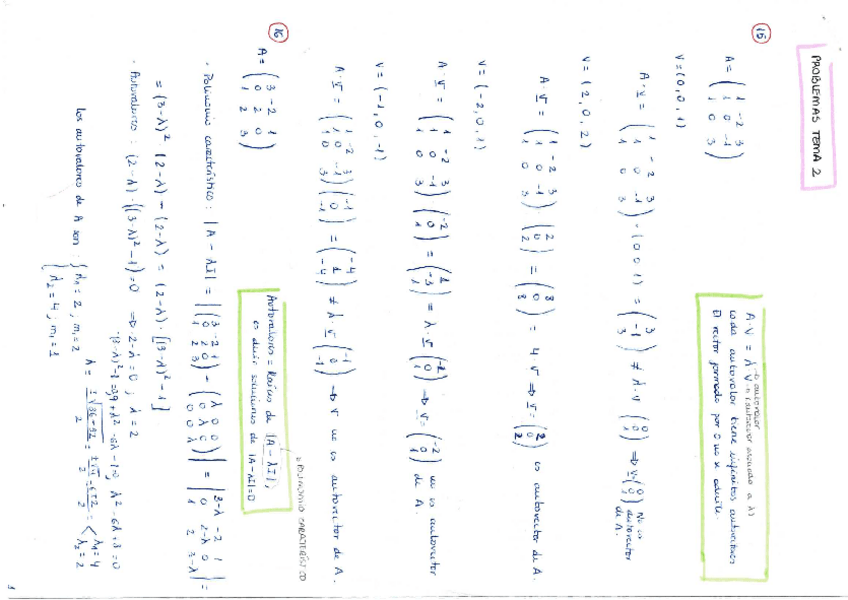 PROBLEMAS TEMA 2
15
A = ( 1 -2 3 / 1 0 -1 / 1 0 3 )
A·V = λ·V
→ autovalor
→ (autovector asociado a λ)
cada autovalor tiene infinitos autovectores
El vector formado por 0 no se admite.
V = (0, 0, 1)
A·V = ( 1 -2 3 / 1 0 -1 / 1 0 3 ) · (0 0 1) = ( 3 / -1 / 3 ) ≠ λ·V ( 0 / 0 / 1 ) ⇒ V = ( 0 / 0 / 1 ) No es autovector de A.
V = (2, 0, 2)
A·V = ( 1 -2 3 / 1 0 -1 / 1 0 3 ) · ( 2 / 0 / 2 ) = ( 8 / 0 / 8 ) = 4·V ⇒ V = ( 2 / 0 / 2 ) es autovector de A.
V = (-2, 0, 1)
A·V = ( 1 -2 3 / 1 0 -1 / 1 0 3 ) ( -2 / 0 / 1 ) = ( 1 / -3 / 1 ) = λ·V ( -2 / 0 / 1 ) → V = ( -2 / 0 / 1 ) no es autovector de A.
V = (-1, 0, -1)
A·V = ( 1 -2 3 / 1 0 -1 / 1 0 3 ) ( -1 / 0 / -1 ) = ( -4 / 1 / -4 ) ≠ λ·V ( -1 / 0 / -1 ) → V no es autovector de A.
16
A = ( 3 -2 1 / 0 2 0 / 1 2 3 )
→ POLINOMIO CARACTERÍSTICO
Autovalores = Raíces de |A - λI|,
es decir soluciones de |A - λI| = 0
· Polinomio característico: |A - λI| = | ( 3 -2 1 / 0 2 0 / 1 2 3 ) - ( λ 0 0 / 0 λ 0 / 0 0 λ ) | = | 3-λ -2 1 / 0 2-λ 0 / 1 2 3-λ | =
= (3-λ)² · (2-λ) - (2-λ) = (2-λ) · [(3-λ)² - 1]
· Autovalores: (2-λ) · ((3-λ)² - 1) = 0 ⇒ · 2-λ = 0 ; λ = 2
λ² - 6λ + 8 = 0
λ₁ = 4
λ₂ = 2
Los autovalores de A son: { λ₁ = 2 ; m₁ = 2
λ₂ = 4 ; m₂ = 1
1